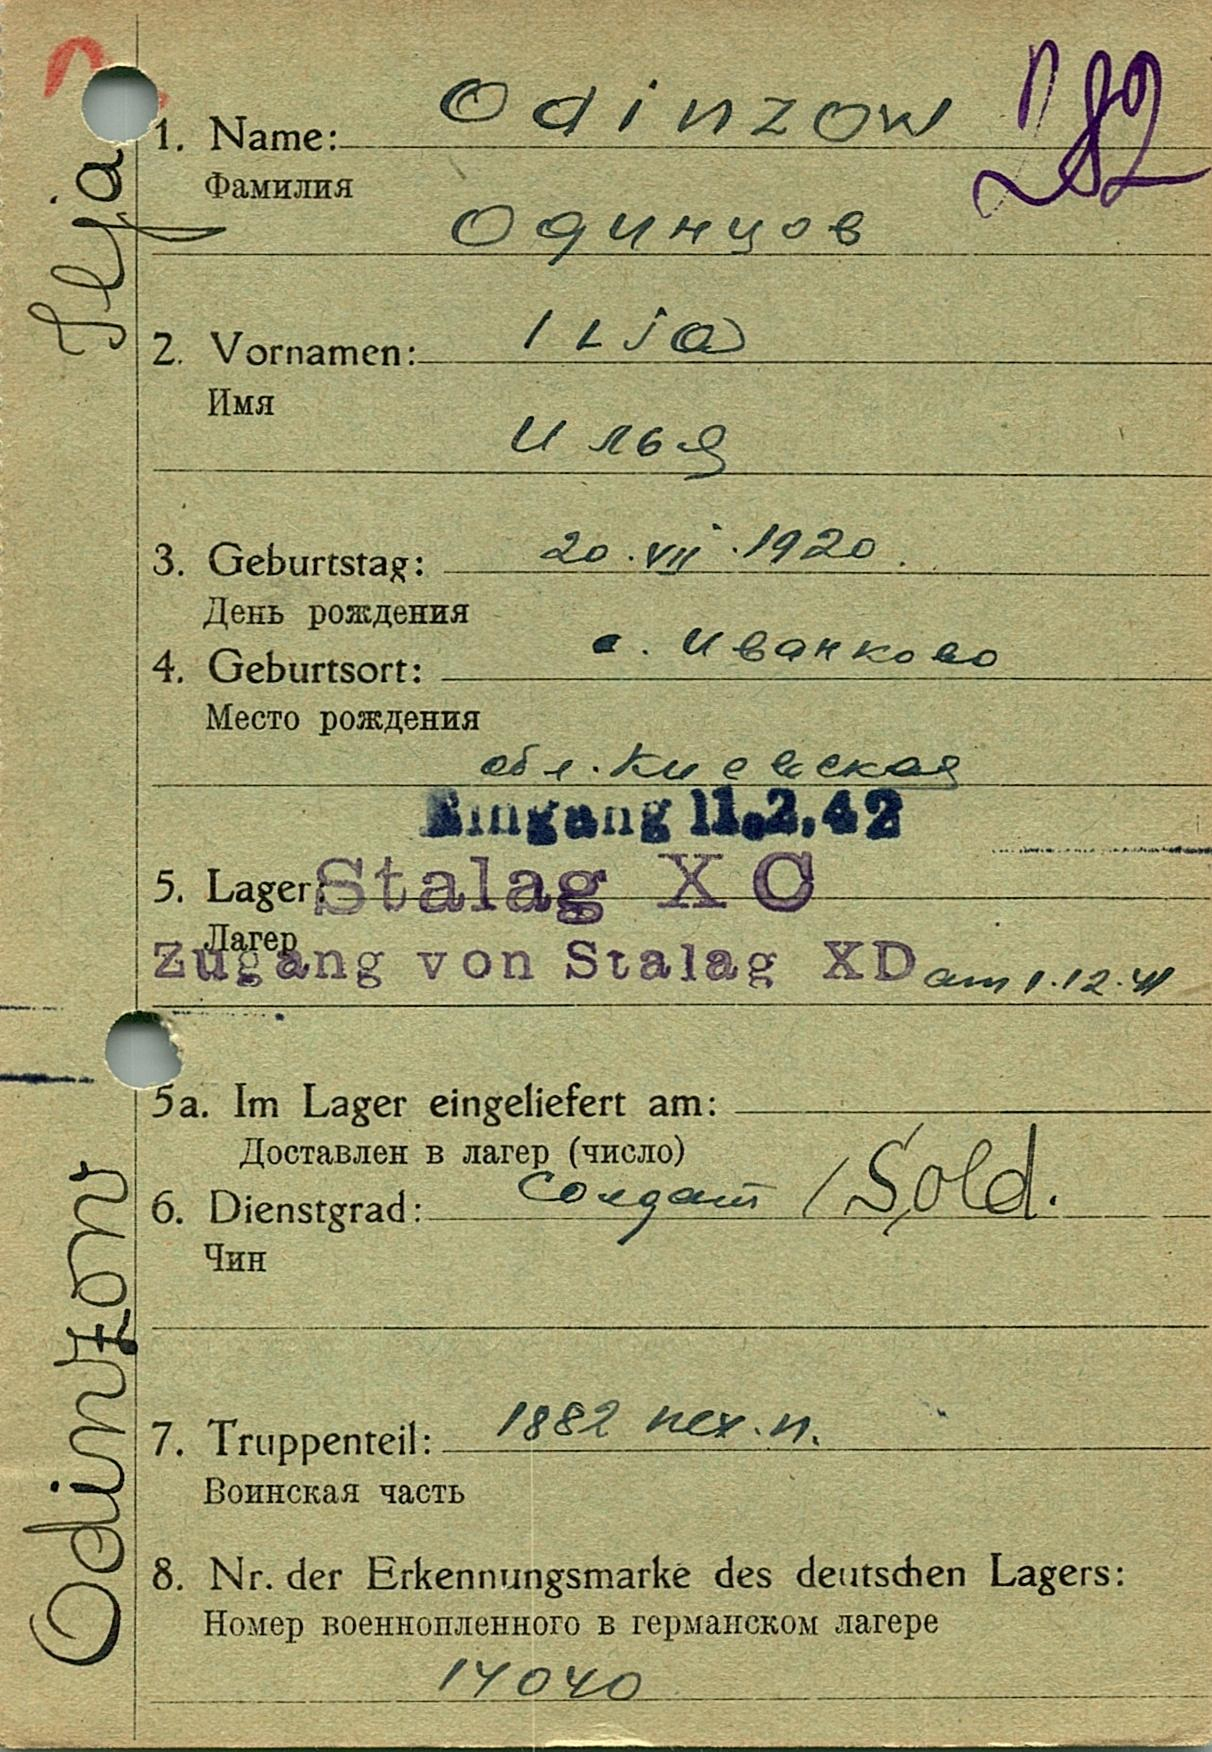 282
1. Name: Odinzow
Фамилия
Одинцов
2. Vornamen: Ilja
Имя
Илья
3. Geburtstag: 20.VII.1920.
День рождения
4. Geburtsort: с. Иванково
Место рождения
обл. Киевская
Eingang 11.2.42
5. Lager: Stalag X C
Лагер
Zugang von Stalag XD am 1.12.41
5a. Im Lager eingeliefert am:
Доставлен в лагер (число)
6. Dienstgrad: солдат / Sold.
Чин
7. Truppenteil: 1882 пех. п.
Воинская часть
8. Nr. der Erkennungsmarke des deutschen Lagers:
Номер военнопленного в германском лагере
14040
Odinzow Ilja